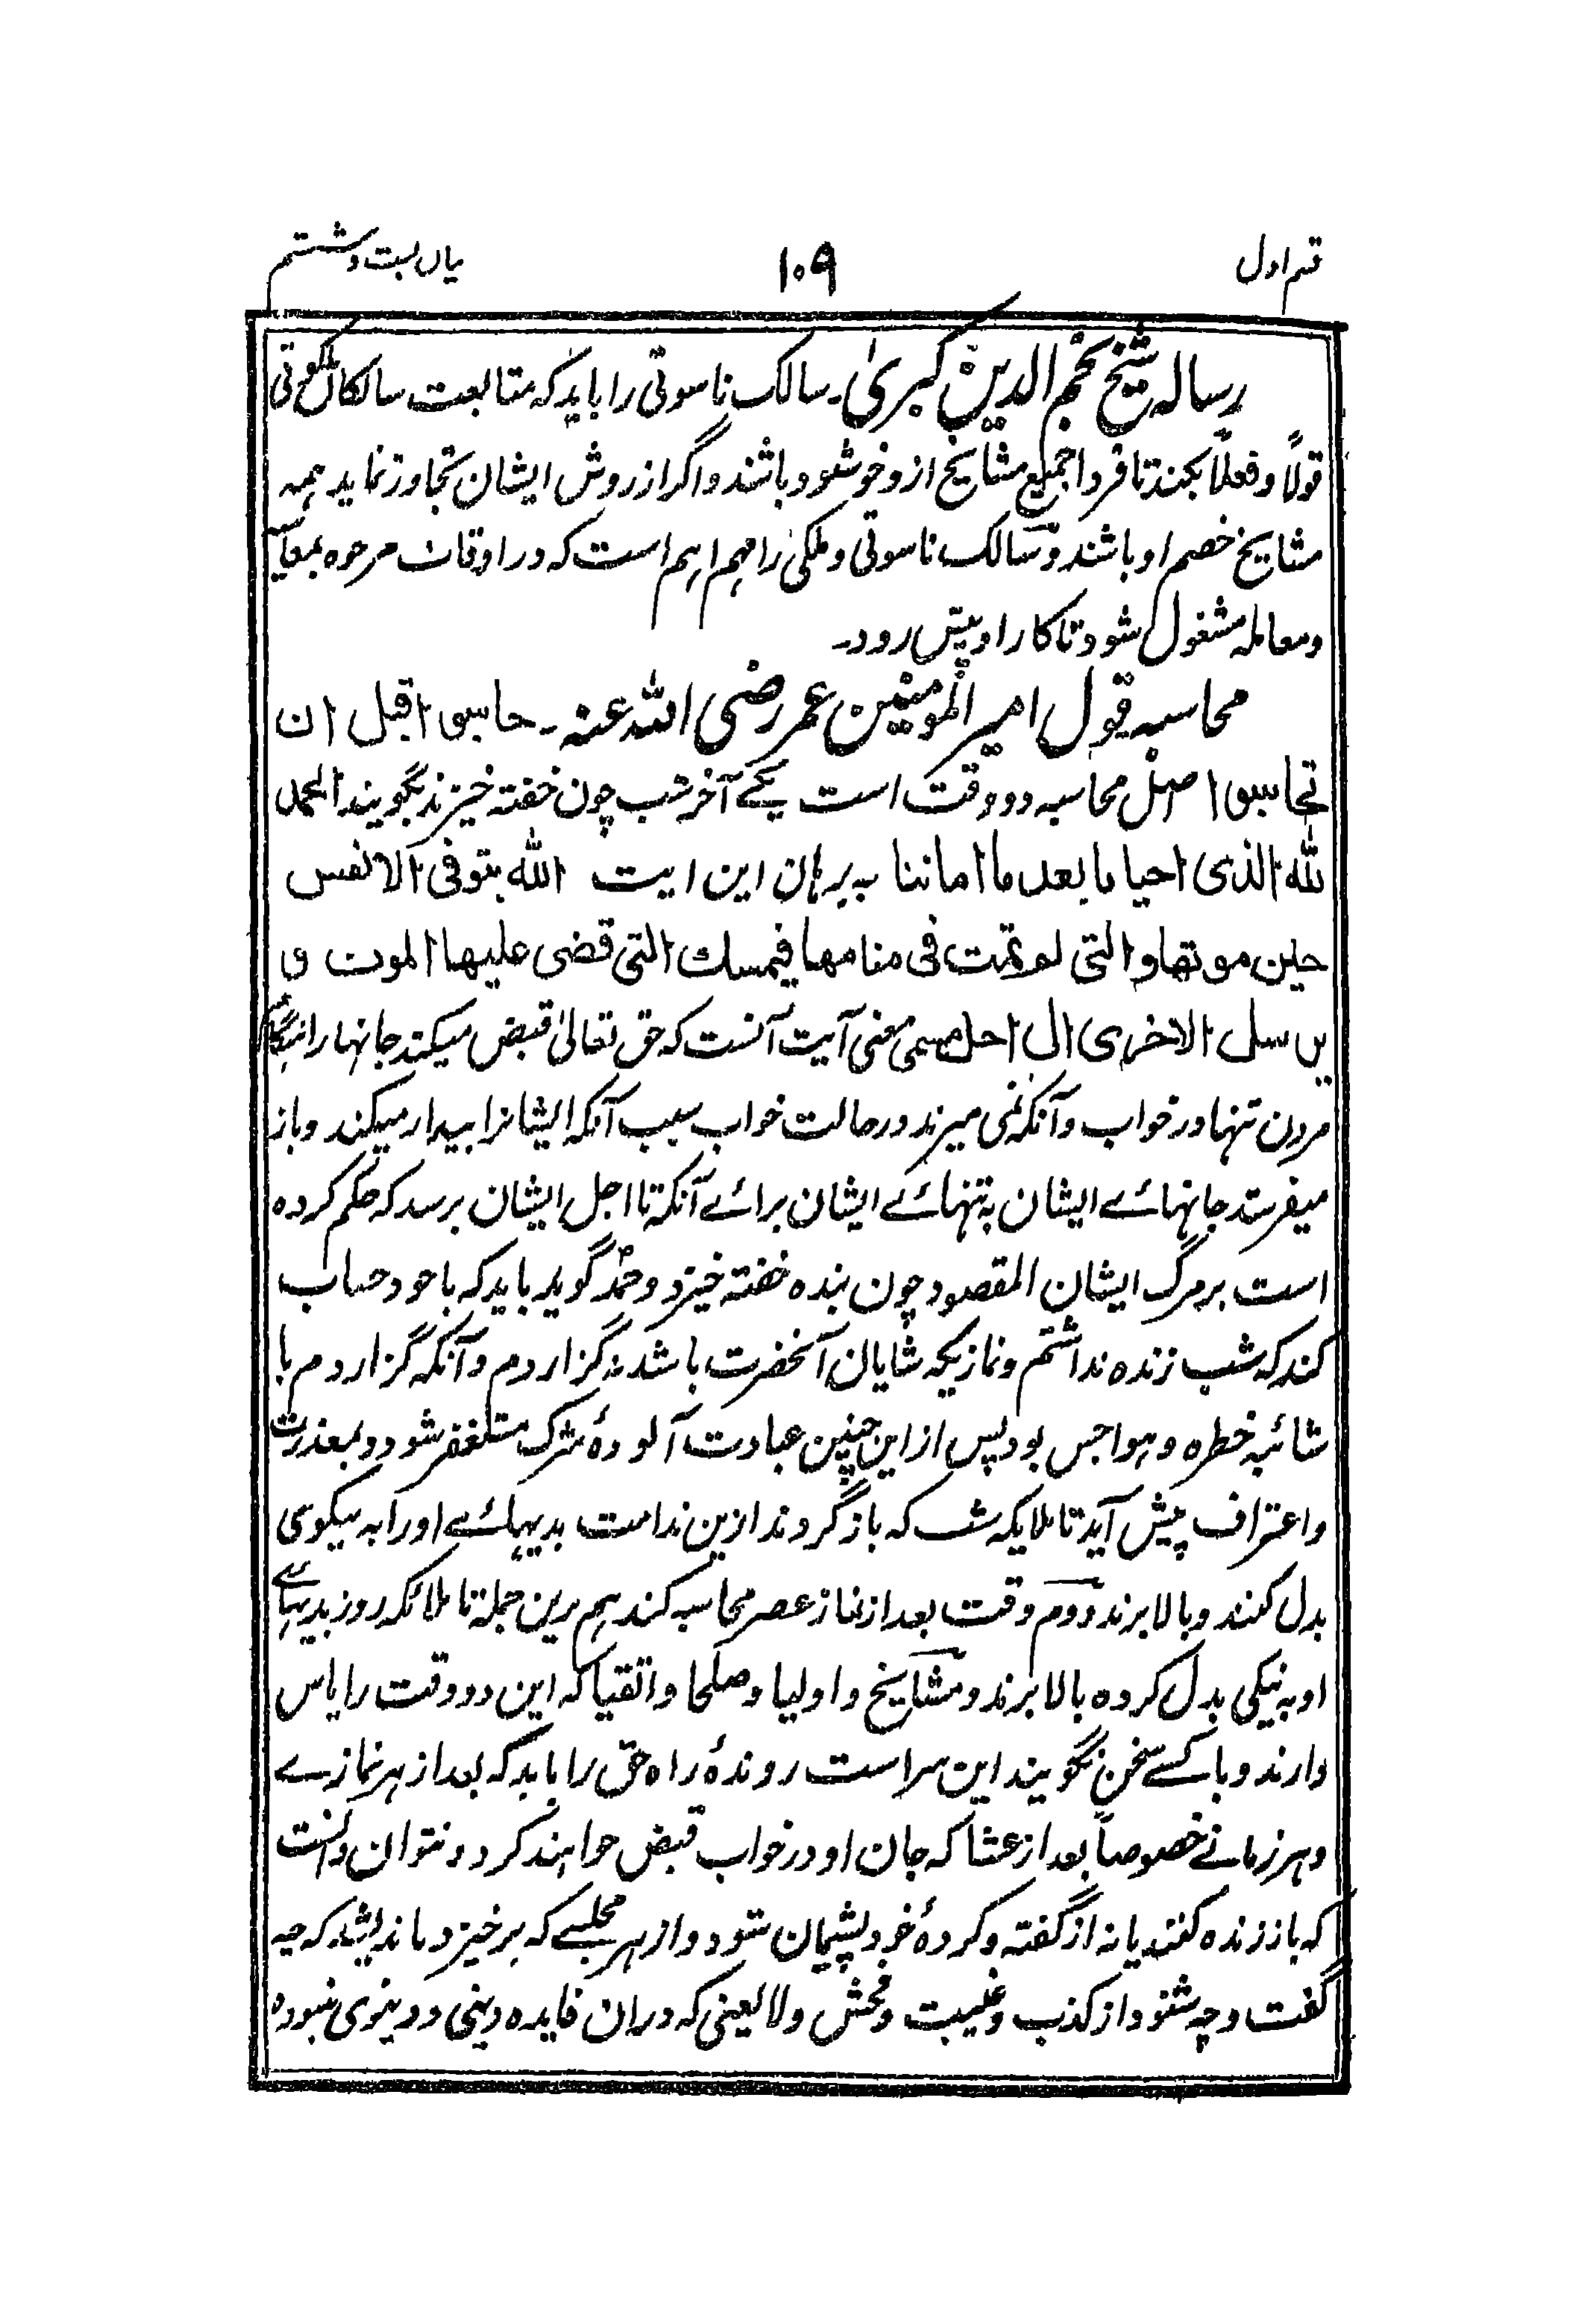 قسم اول
۱۰۹
بیان بست و ششم
رساله شیخ نجم الدین کبریٰ۔ سالک ناسوتی را باید که متابعت سالکان ملکوتی
قولاً و فعلاً بکند تا فردا جمیع مشایخ ازو خوشنود باشند و اگر از روش ایشان تجاوز نماید همه
مشایخ خصم او باشند و سالک ناسوتی و ملکی را مهم اهم است که در اوقات مرجوه بمحاسبه
و معامله مشغول شود تا کار او پیش رود۔
محاسبه قول امیر المومنین عمر رضی الله عنه۔ حاسبوا قبل ان
تحاسبوا اصل محاسبه دو وقت است یکے آخر شب چون خفته خیزند بگویند الحمد
لله الذی احیانا بعد ما اماتنا به برهان این ایت الله یتوفی الانفس
حین موتها و التی لم تمت فی منامها فیمسك التی قضی علیها الموت و
یرسل الاخری الی اجل مسمی معنی آیت آنست که حق تعالیٰ قبض میکند جانها را هنگام
مردن تنها و در خواب و آنکه نمی میرند در حالت خواب سبب آنکه ایشانرا بیدار میکند و باز
میفرستد جانهائے ایشان به تنهائے ایشان برائے آنکه تا اجل ایشان برسد که حکم کرده
است بر مرگ ایشان المقصود چون بنده خفته خیزد و حمد گوید باید که با خود حساب
کند که شب زنده نداشتم و نماز یکه شایان آنحضرت باشد نه گزاردم و آنکه گزاردم با
شائبه خطره و هواجس بود پس از این چنین عبادت آلودۀ شرک مستغفر شود و بمعذرت
و اعتراف پیش آید تا ملایکه شب که باز گردند ازین ندامت بدیهائے او را به نیکوی
بدل کنند و بالا برند دوم وقت بعد از نماز عصر محاسبه کند هم برین جمله تا ملائکه روز بدیهائے
او به نیکی بدل کرده بالا برند و مشایخ و اولیا و صلحا و اتقیا که این دو وقت را پاس
دارند و با کسے سخن نگویند این سر است روندۀ راه حق را باید که بعد از هر نمازے
و هر زمانے خصوصاً بعد از عشا که جان او در خواب قبض خواهند کرد و نتوان دانست
که باز زنده کنند یا نه از گفته و کردۀ خود پشیمان شود و از هر مجلسے که بر خیزد باندیشد که چه
گفت و چه شنود از کذب و غیبت و فحش و لا یعنی که دران فایده دینی و دنیوی نبوده